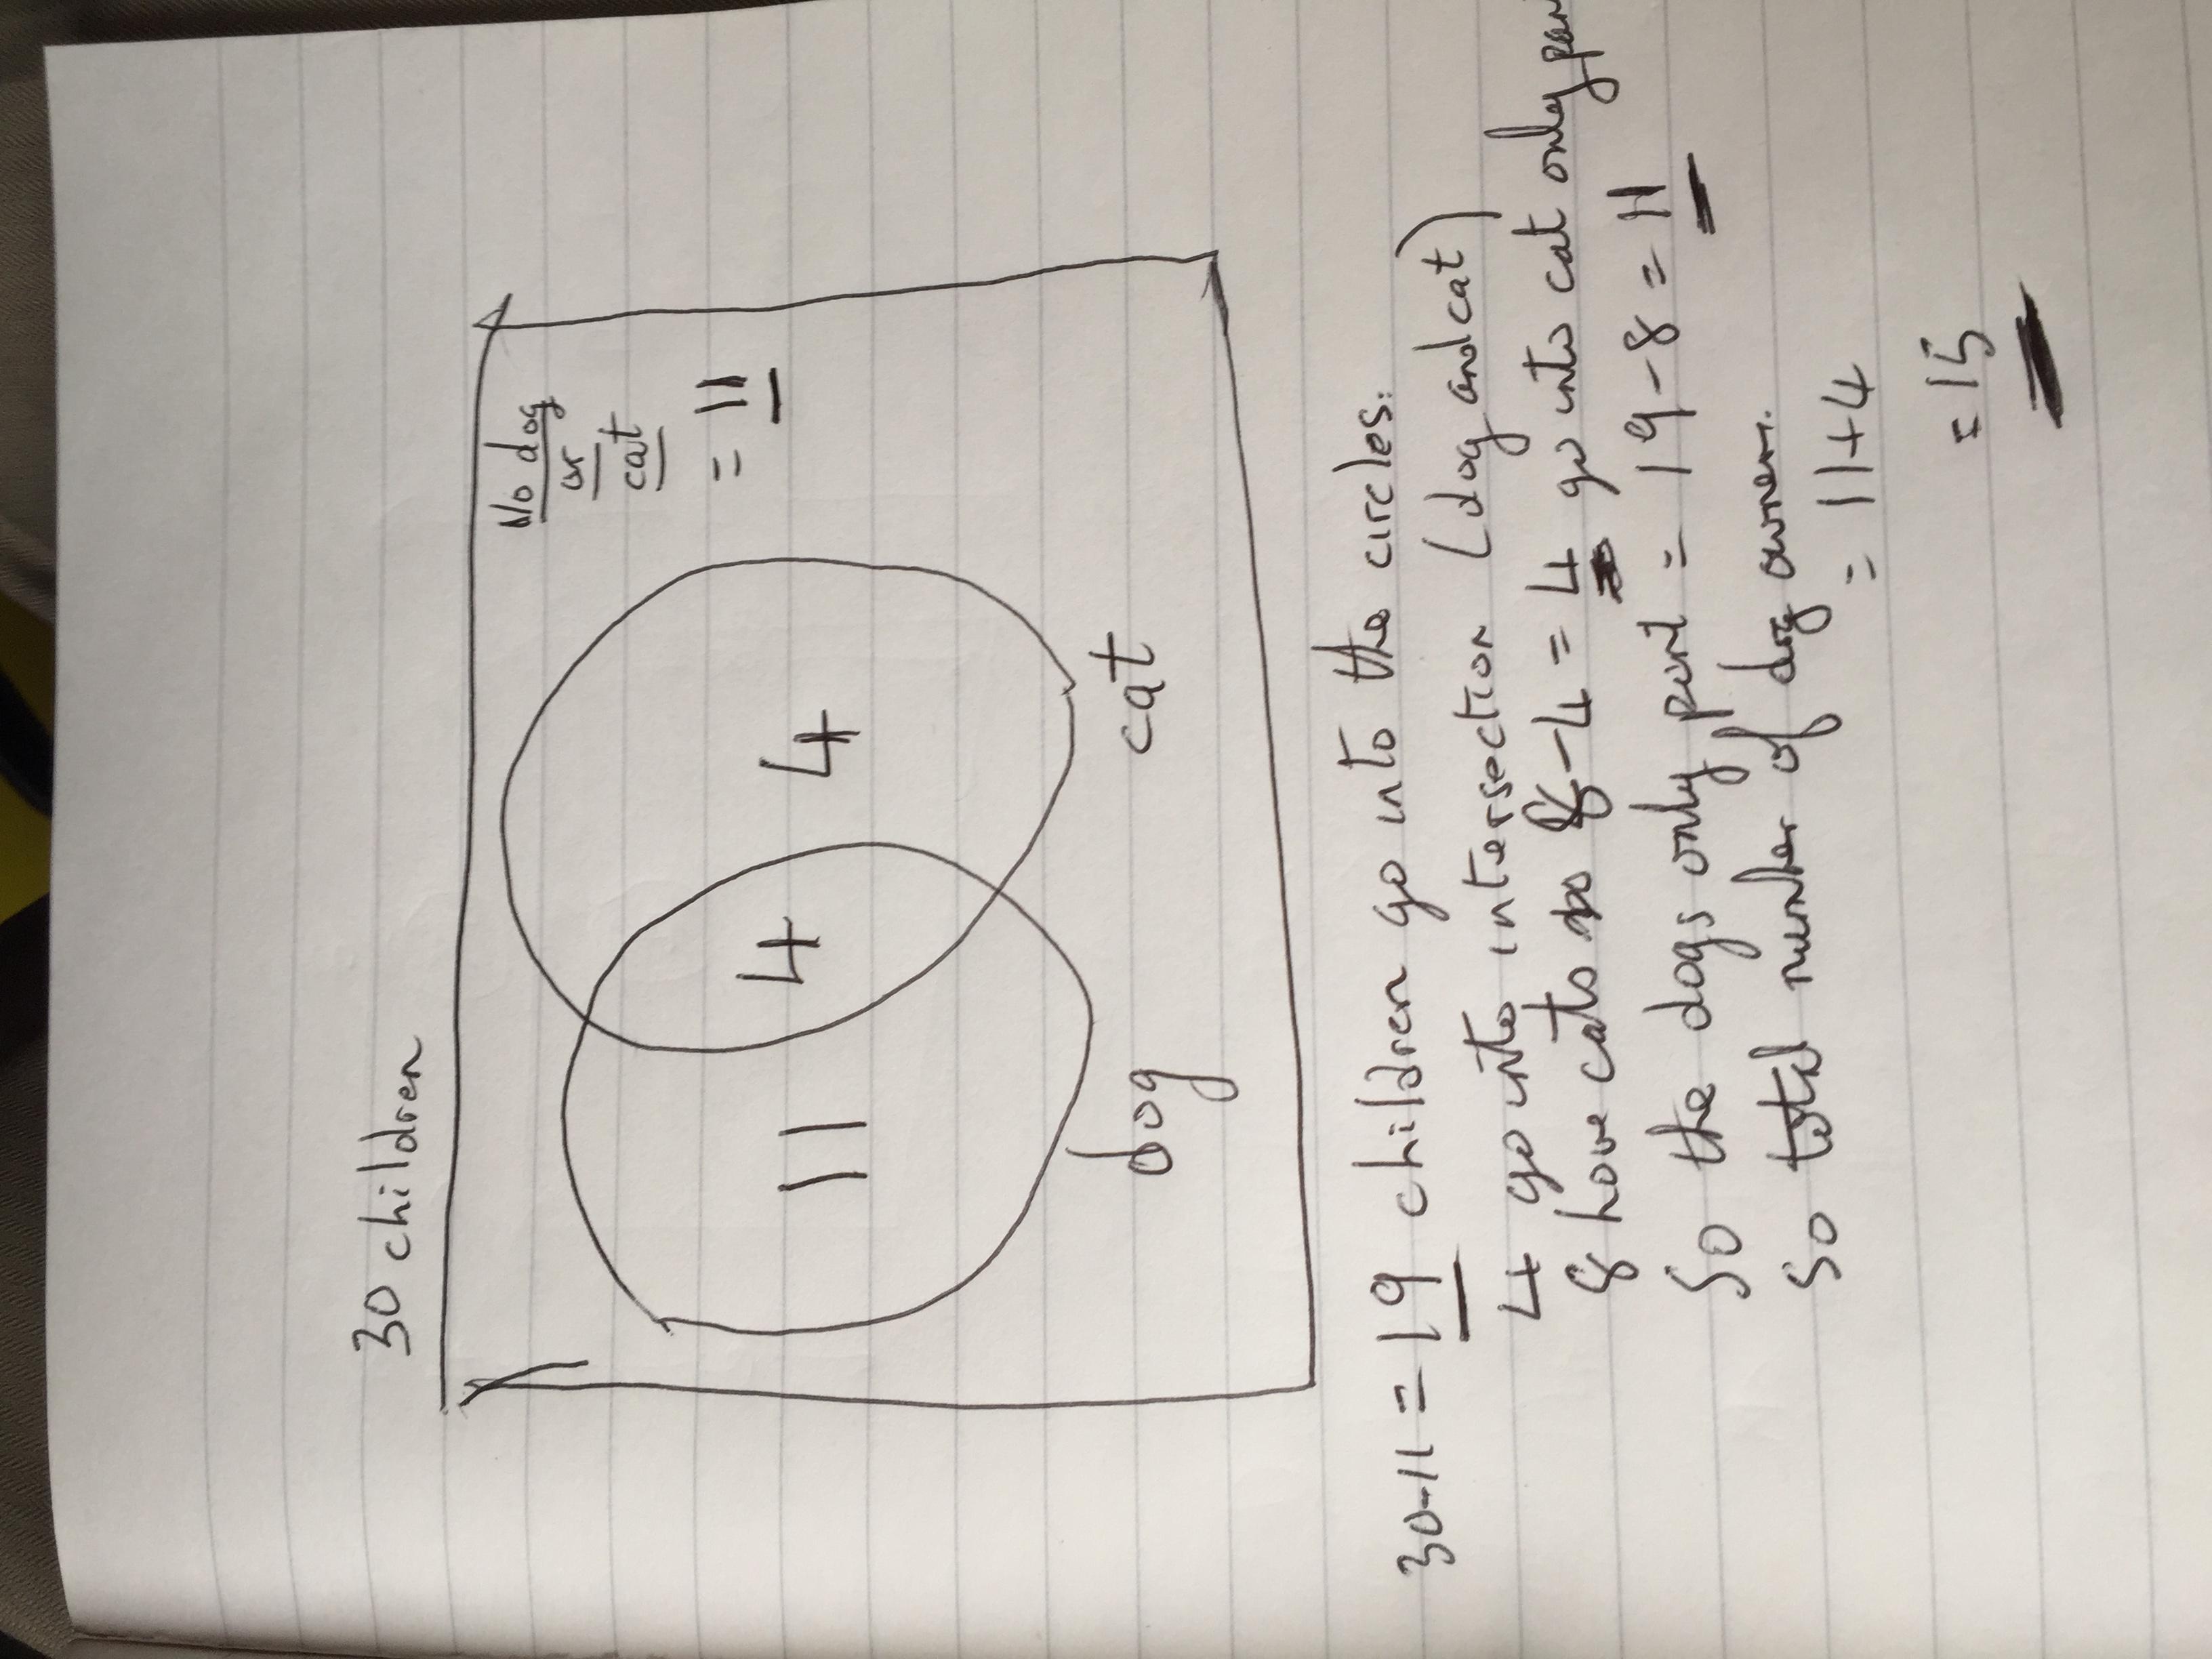 30 children
No dog
or
cat
= 11
11
4
4
dog
cat
30-11 = 19 children go into the circles.
4 go into intersection (dog and cat)
8 have cats so 8-4 = 4 go into cat only
So the dogs only part = 19-8 = 11
So total number of dog owners.
= 11+4
= 15